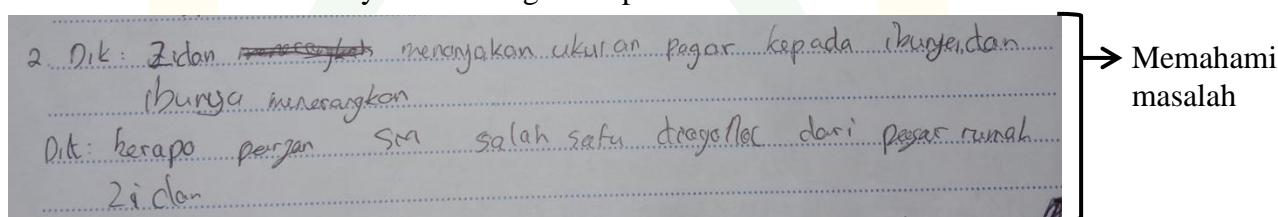 2. Dik : Zidan menanyakan ukuran pagar kepada ibunya, dan
ibunya menerangkan
Dit : berapa panjan SM salah satu diagonal dari pagar rumah
Zidan
Memahami
masalah